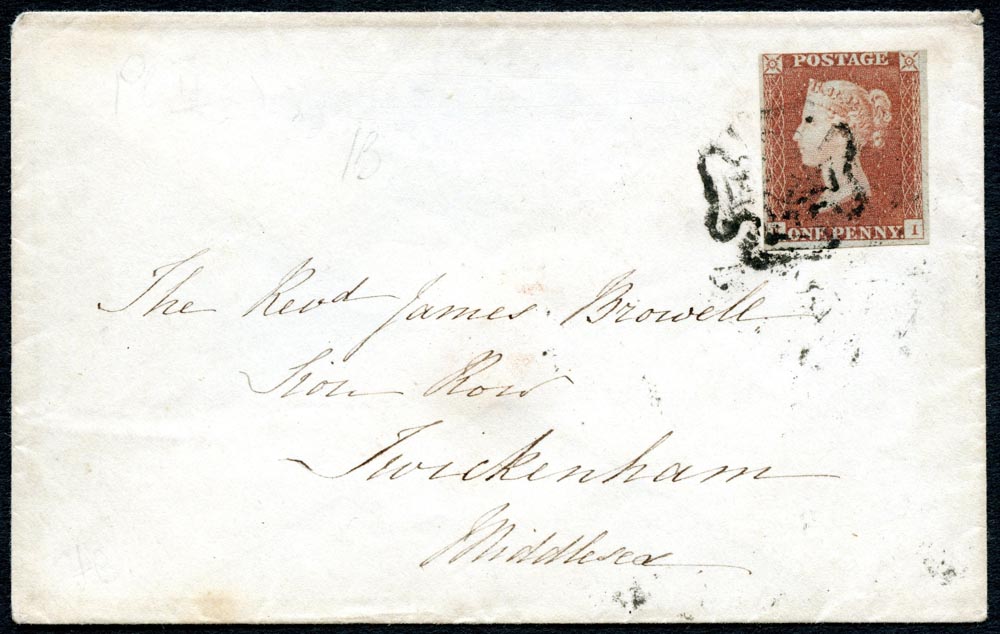 POSTAGE
ONE PENNY.
I
1B
The Revd James Browell
Sion Row
Twickenham
Middlesex